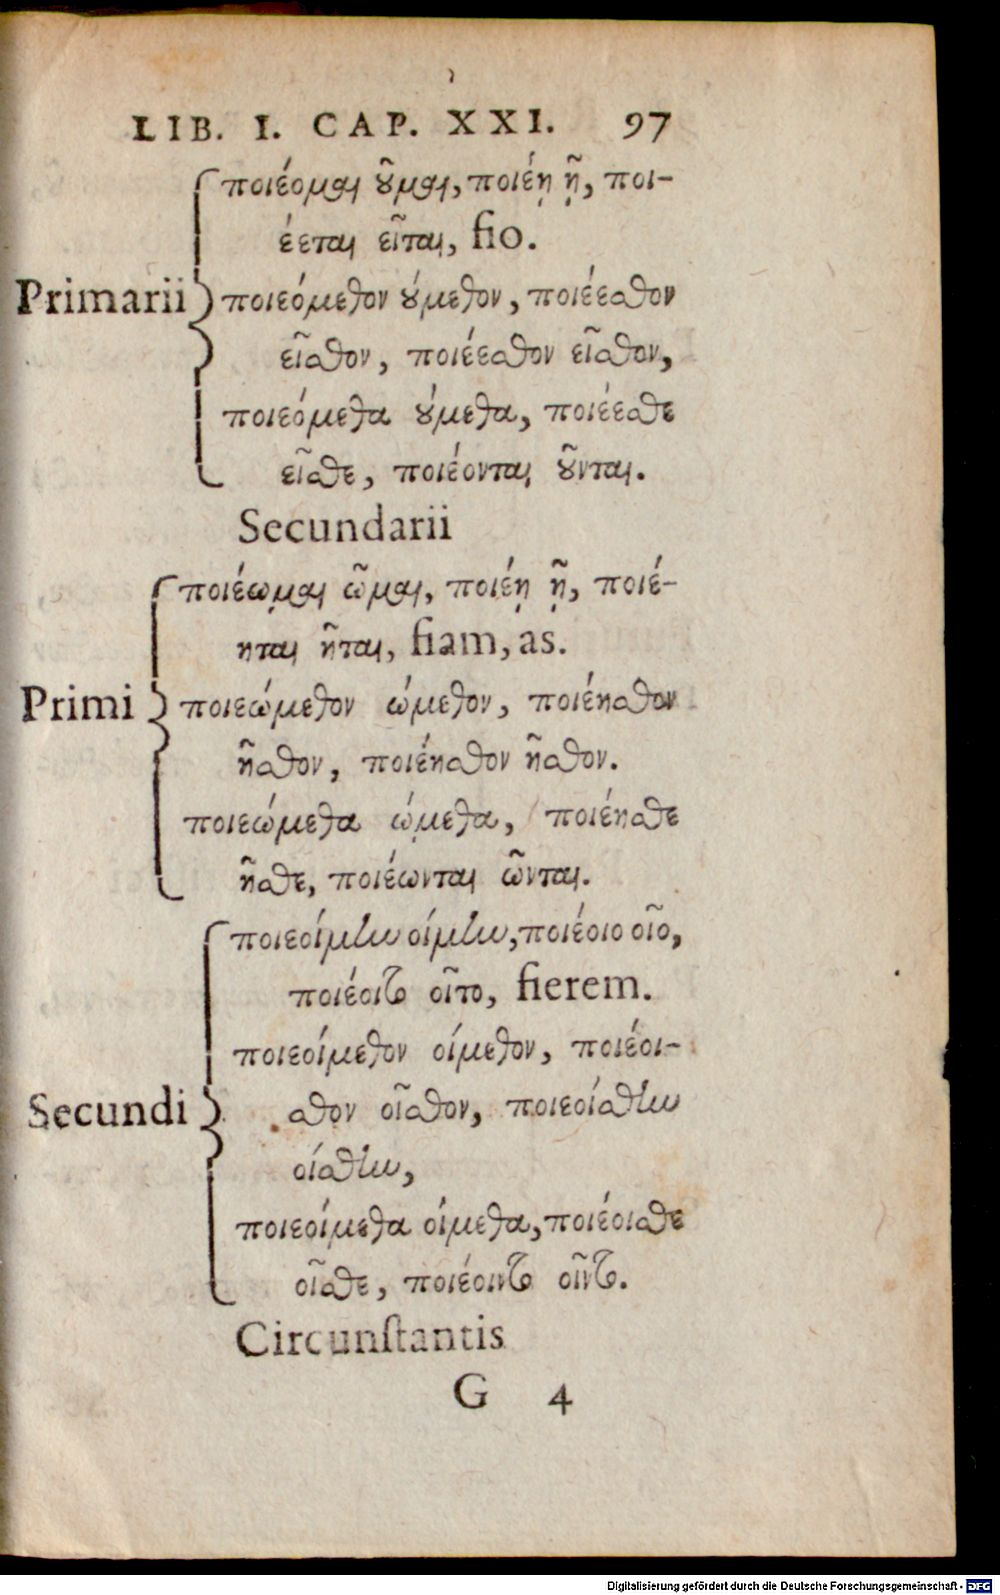 LIB. I. CAP. XXI. 97
ποιέομαι οῦμαι, ποιέῃ ῇ, ποι-
έεται εῖται, fio.
Primarii ποιεόμεθον ούμεθον, ποιέεσθον
εῖσθον, ποιέεσθον εῖσθον,
ποιεόμεθα ούμεθα, ποιέεσθε
εῖσθε, ποιέονται οῦνται.
Secundarii
ποιέωμαι ῶμαι, ποιέῃ ῇ, ποιέ-
ηται ῆται, fiam, as.
Primi ποιεώμεθον ώμεθον, ποιέησθον
ῆσθον, ποιέησθον ῆσθον.
ποιεώμεθα ώμεθα, ποιέησθε
ῆσθε, ποιέωνται ῶνται.
ποιεοίμην οίμην, ποιέοιο οῖο,
ποιέοιτο οῖτο, fierem.
ποιεοίμεθον οίμεθον, ποιέοι-
Secundi σθον οῖσθον, ποιεοίσθην
οίσθην,
ποιεοίμεθα οίμεθα, ποιέοισθε
οῖσθε, ποιέοιντο οῖντο.
Circunſtantis
G 4
Digitalisierung gefördert durch die Deutsche Forschungsgemeinschaft - DFG